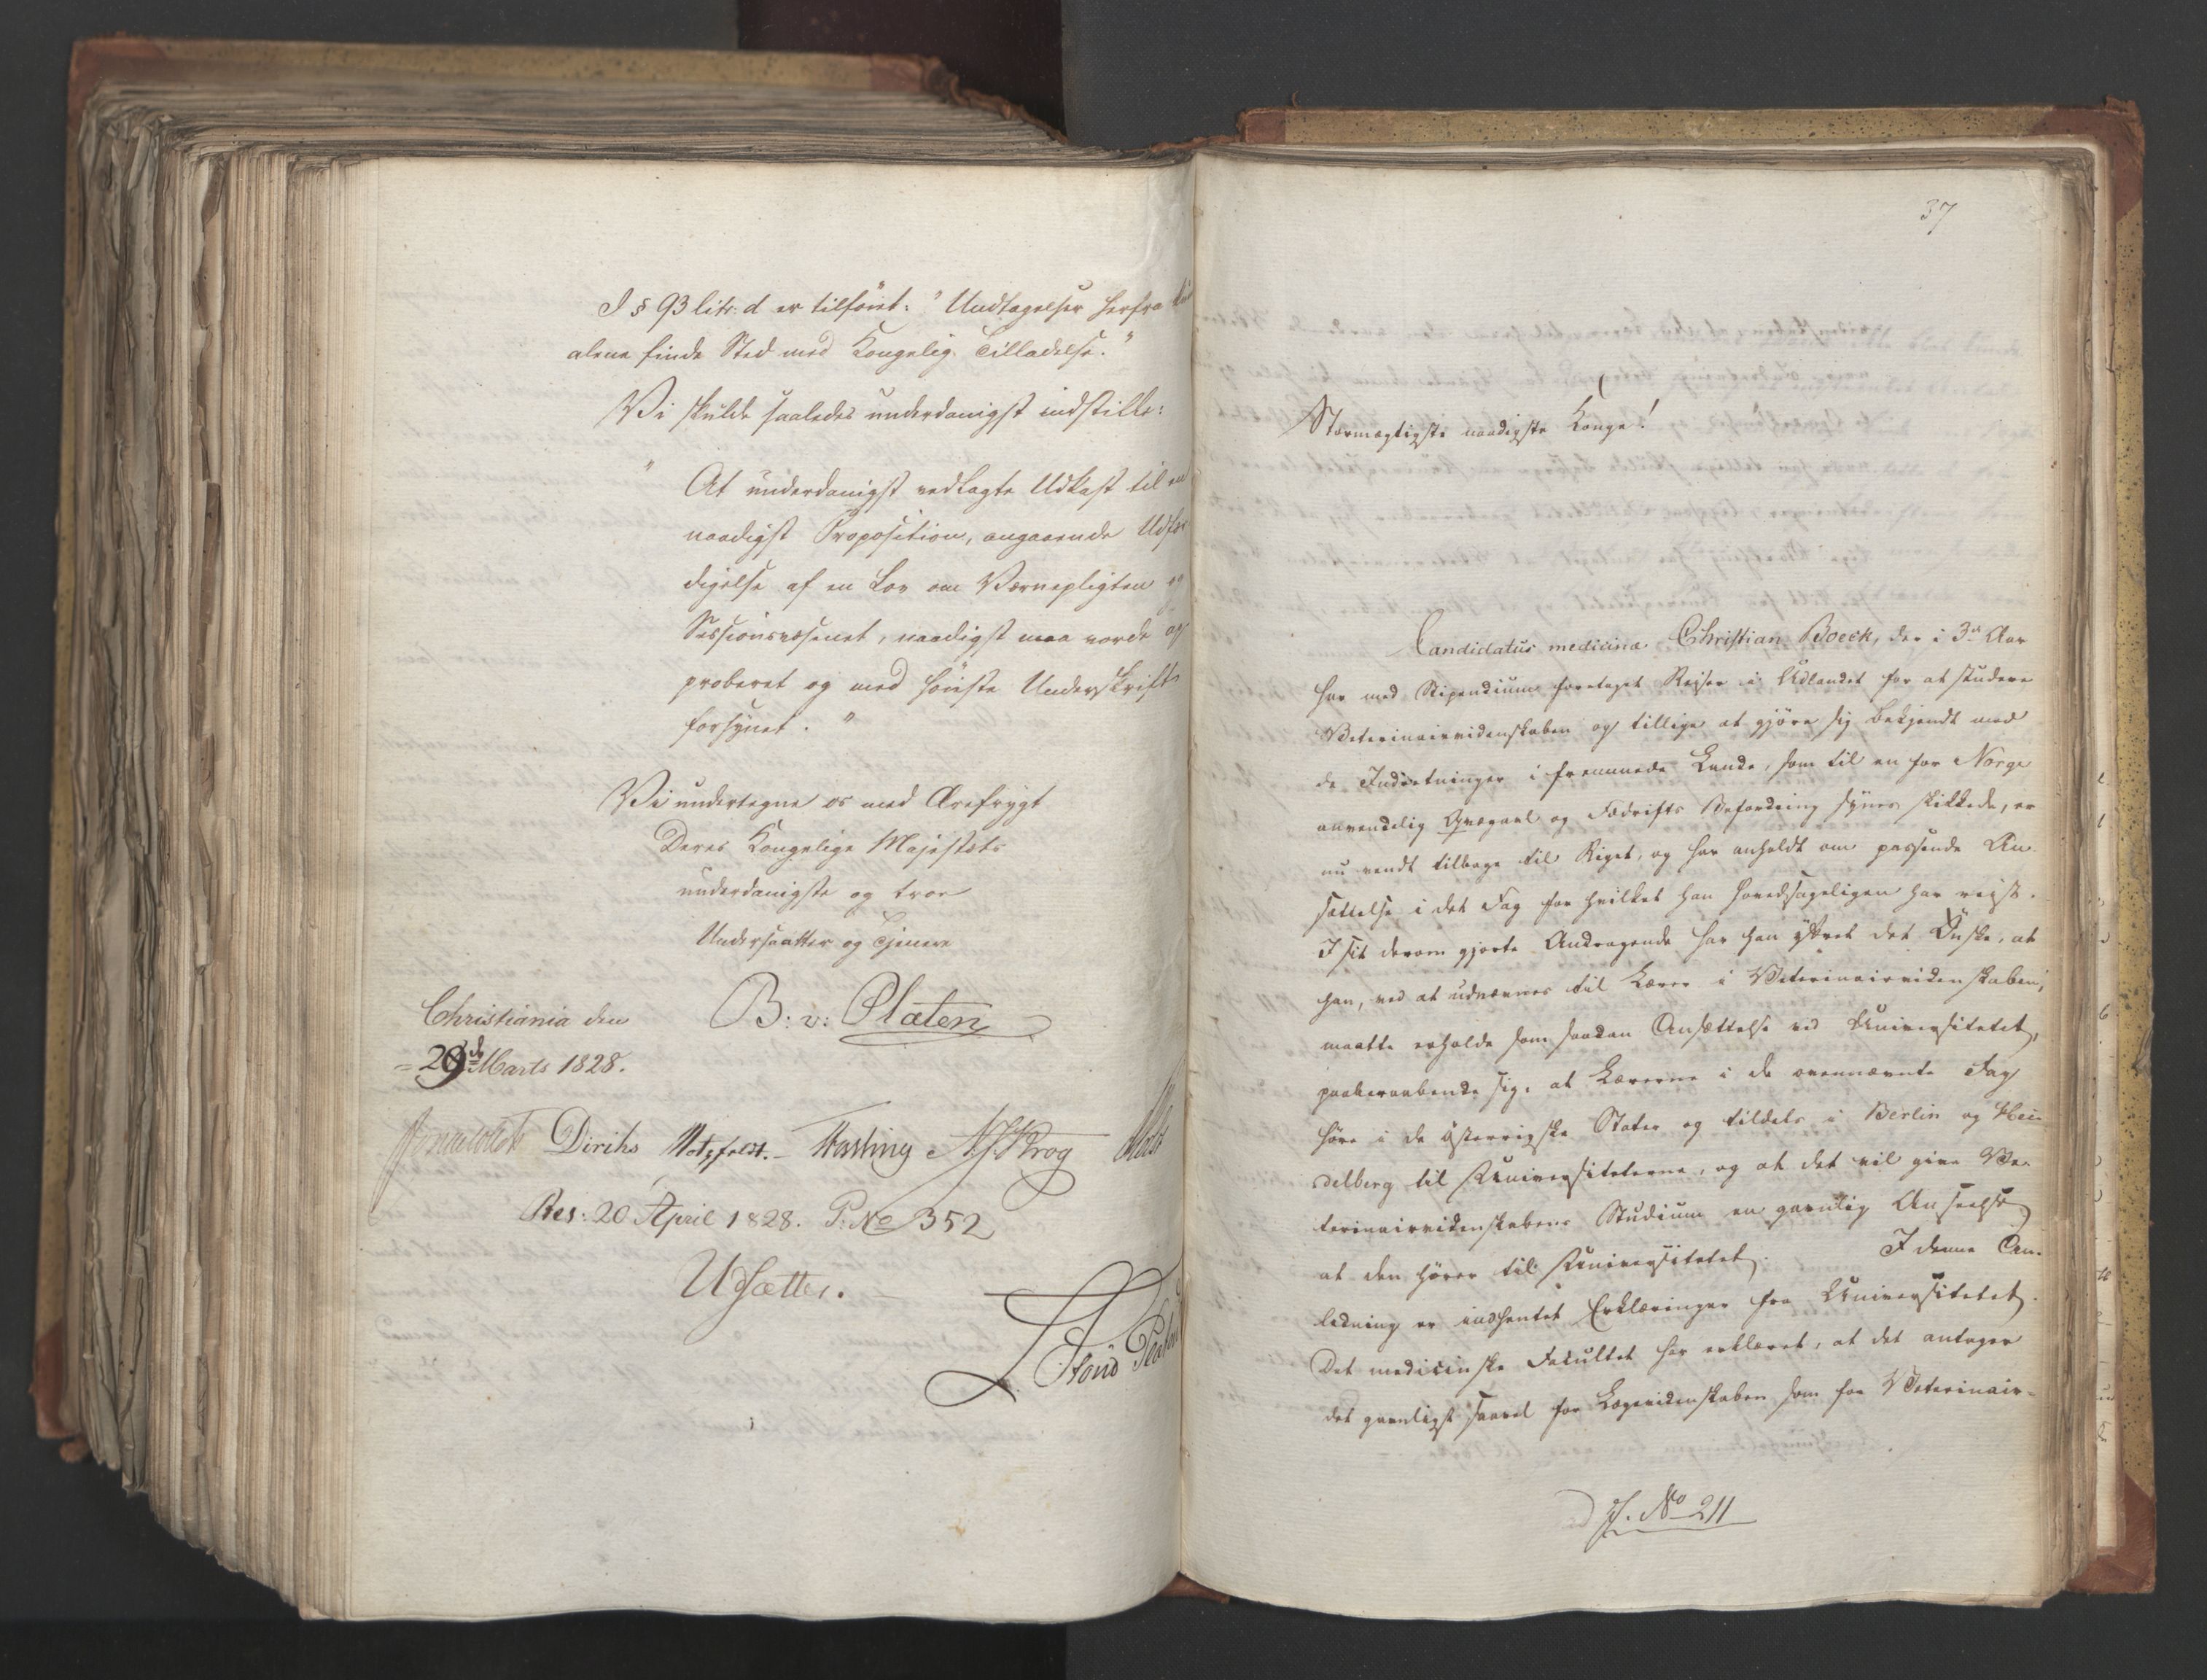 I § 93 litr. d er tilföiet: "Undtagelser herfra kan
alene finde Sted med Kongelig Tilladelse."
Vi skulde saaledes underdanigst indstille:
" At underdanigst vedlagte Udkast til en
naadigst Proposition, angaaende Udfær
digelse af en Lov om Værnepligten og
Sessionsvæsenet, naadigst maa vorde ap
proberet og med höieste Underskrift
forsynet. "
Vi undertegne os med Ærefrygt
Deres Kongelige Majestæts
underdanigste og troe
Undersaatter og Tjenere
Christiania den B: v: Platen
= 29de Marts 1828.
Diriks Motzfeldt. Fasting Krog
Res: 20 April 1828. P. No 352
Usætter.
37
Stormægtigste naadigste Konge!
Candidatus medicinæ Christian Boeck, der i 3de Aar
har med Stipendium foretaget Reiser i Udlandet for at studere
Veterinairvidenskaben og tillige at gjøre sig bekjendt med
de Indretninger i fremmede Lande, som til en for Norge
anvendelig Qvægavl og Fædrifts Befordring synes skikkede, er
nu vendt tilbage til Riget, og har anholdt om passende An
sættelse i det Fag for hvilket han hovedsageligen har reist.
I sit derom gjorte Andragende har han yttret det Önske, at
han, ved at udnævnes til Lærer i Veterinairvidenskaben,
maatte erholde som saadan Ansættelse ved Universitetet,
paaberaabende sig, at Lærerne i de ovennævnte Fag
høre i de østerrigske Stater og tildels i Berlin og Hei-
delberg til Universiteterne, og at det vil give Ve-
terinairvidenskabens Studium en gavnlig Anseelse,
at den hører til Universitetet. I denne An-
ledning er indhentet Erklæringer fra Universitetet.
Det medicinske Fakultet har erklæret, at det antager
det gavnligt saavel for Lægevidenskaben som for Veterinair-
ad J. No 211